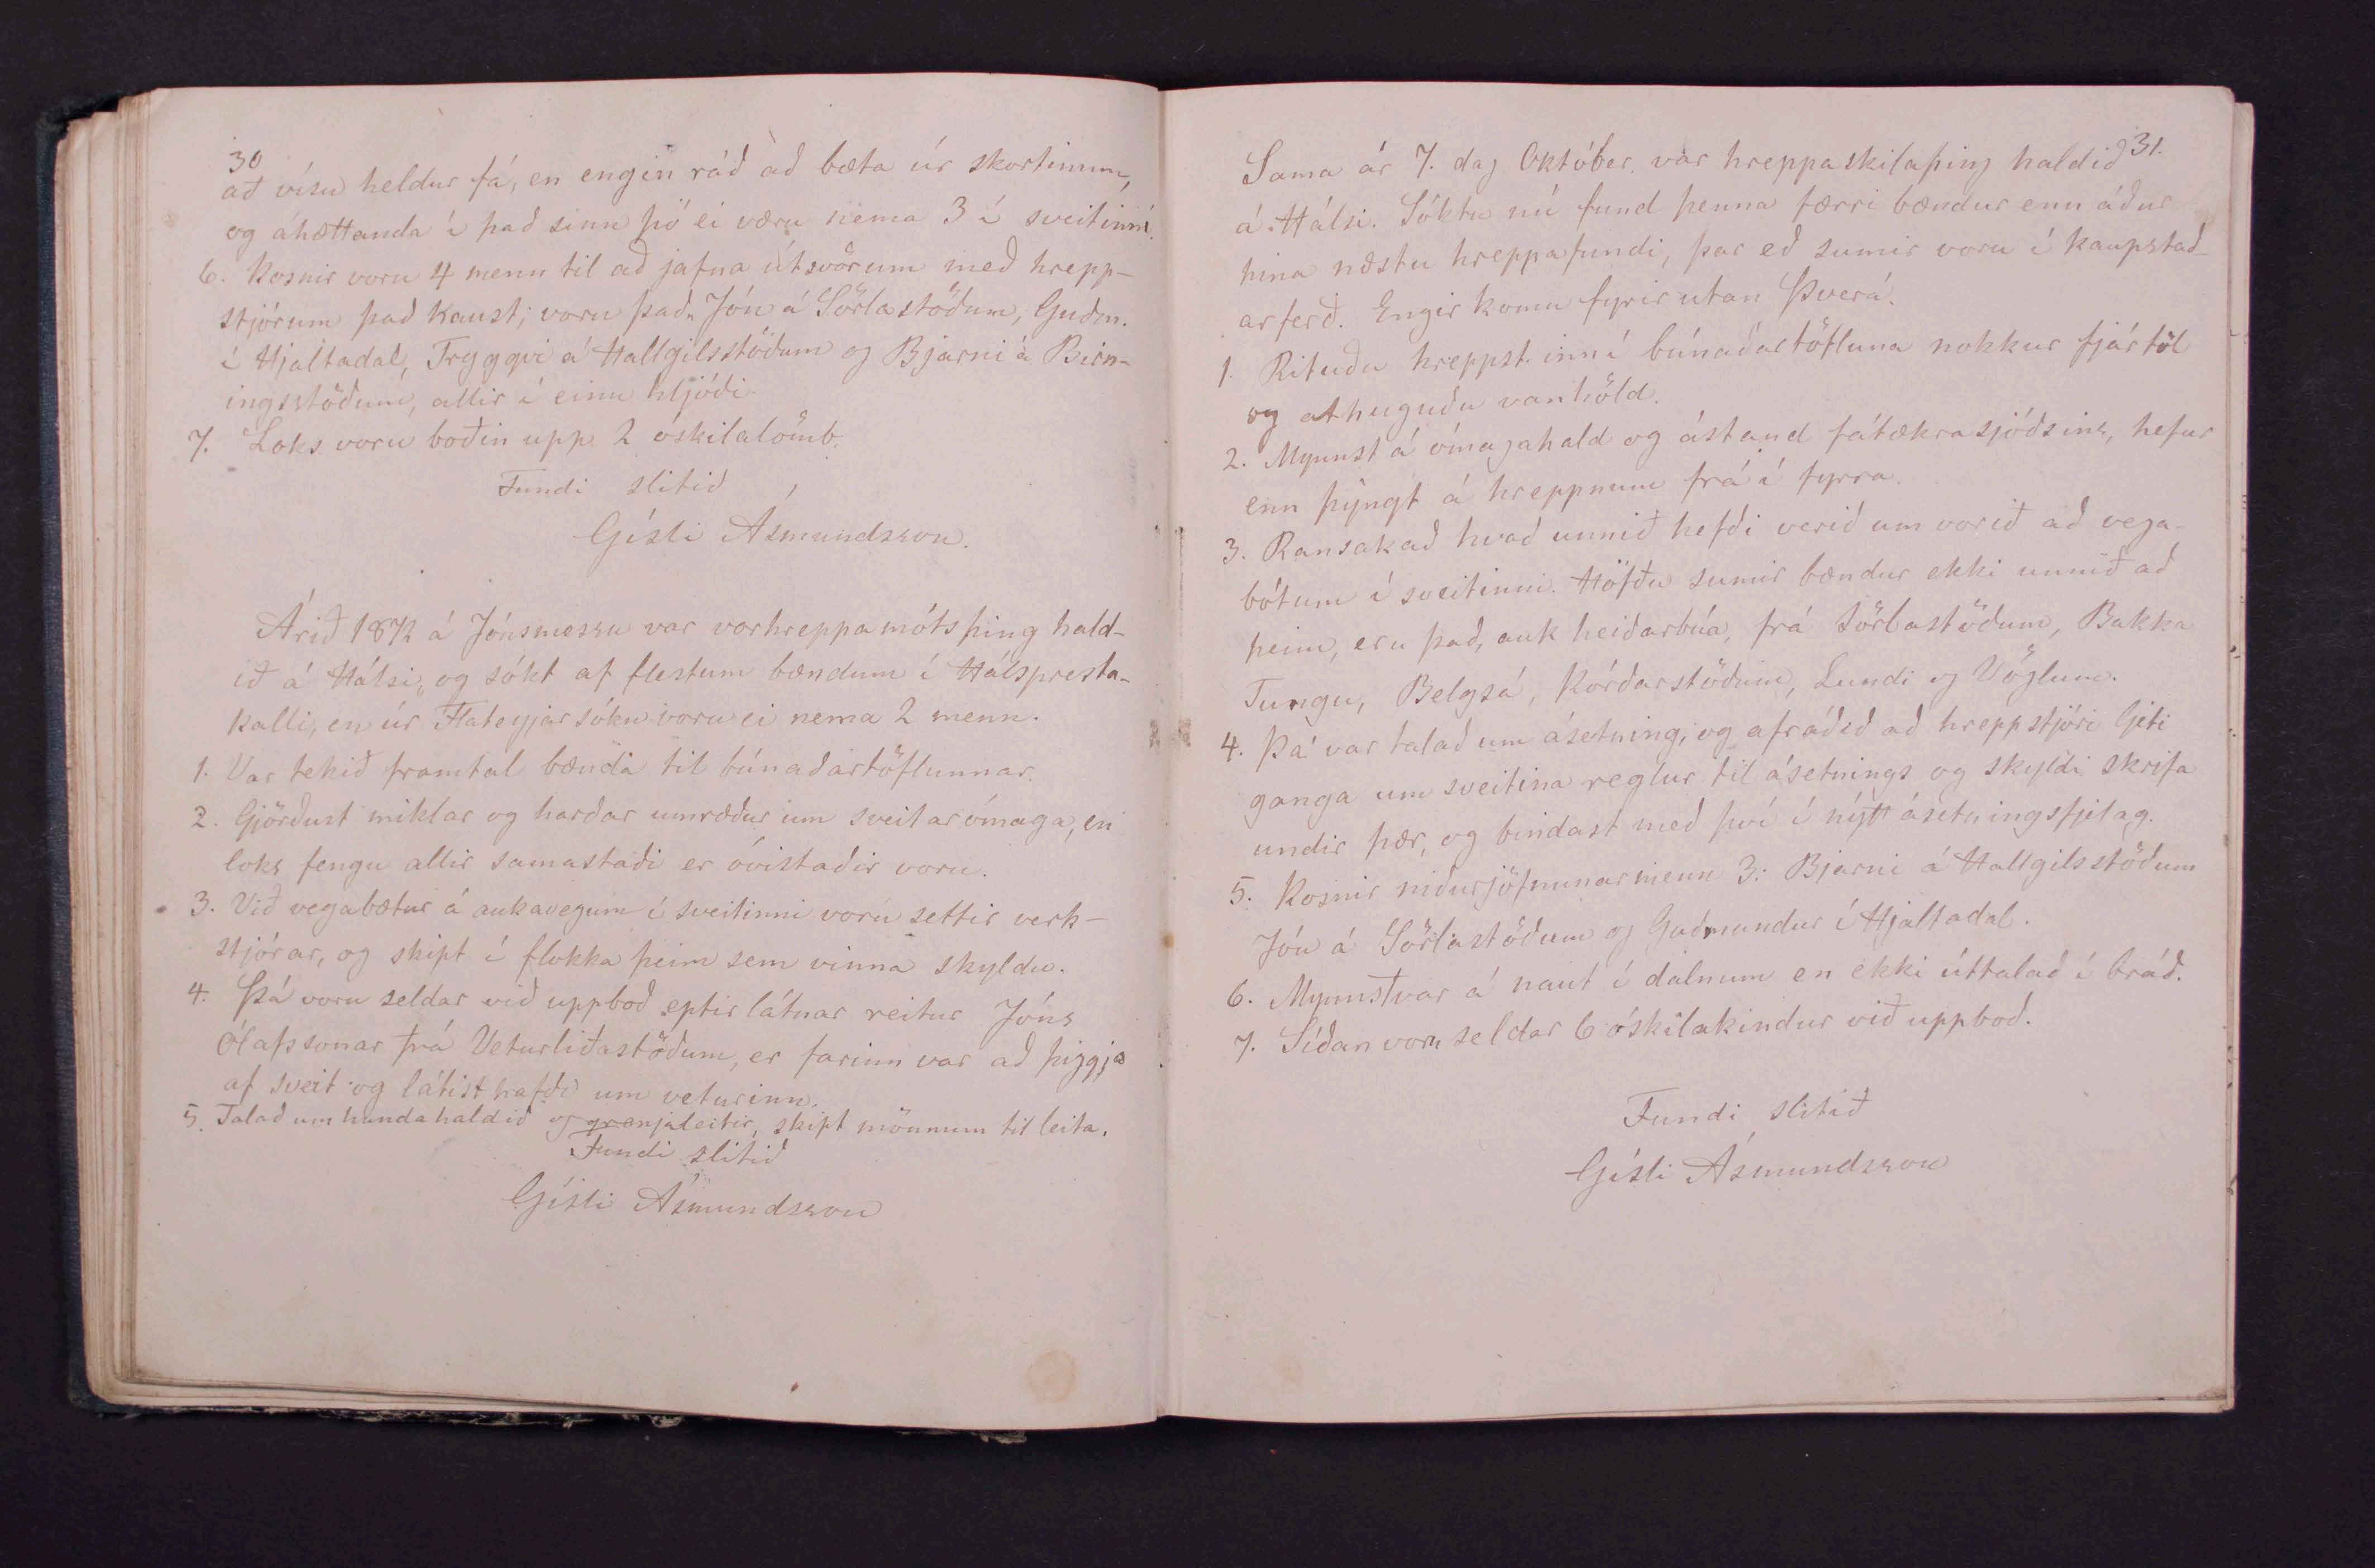 30
að vísu heldur fá, en engin ráð að bæta úr skortinum,
og áhættanda í það sinn þó ei væru nema 3 í sveitinni.
6. Kosnir voru 4 menn til að jafna útsvörum með hrepp-
stjórum það haust; voru það Jón á Sörlastöðum, Guðm.
í Hjaltadal, Tryggvi á Hallgilsstöðum og Bjarni á Birn-
ingsstöðum, allir í einu hljóði.
7. Loks voru boðin upp 2 óskilalömb.
Fundi slitið
Gísli Ásmundsson.
Árið 1872 á Jónsmessu var vorhreppamótsþing hald-
ið á Hálsi, og sókt af flestum bændum í Hálspresta-
kalli, en úr Flateyjarsókn voru ei nema 2 menn.
1. Var tekið framtal bænda til búnaðartöflunnar.
2. Gjörðust miklar og harðar umræður um sveitarómaga, en
loks fengu allir samastaði er óvistaðir voru.
3. Við vegabætur á aukavegum í sveitinni voru settir verk-
stjórar, og skipt í flokka þeim sem vinna skyldu.
4. Þá voru seldar við uppboð eptirlátnar reitur Jóns
Ólafssonar frá Veturliðastöðum, er farinn var að þiggja
af sveit og látist hafði um veturinn.
5. Talað um hundahaldið og grenjaleitir, skipt mönnum til leita.
Fundi slitið
Gísli Ásmundsson
31.
Sama ár 7. dag Október var hreppaskilaþing haldið
á Hálsi. Sóktu nú fund þenna færri bændur enn áður
hina næstu hreppafundi, þar eð sumir voru í kaupstað-
arferð. Engir komu fyrir utan Þverá.
1. Rituðu hreppst. inn í búnaðartöfluna nokkur fjártöl
og athuguðu vanhöld.
2. Mynnst á ómagahald og ástand fátækrasjóðsins, hefur
enn þýngt á hreppnum frá í fyrra.
3. Ransakað hvað unnið hefði verið um vorið að vega-
bótum í sveitinni. Höfðu sumir bændur ekki unnið að
þeim, eru það, auk heiðarbúa, frá Sörlastöðum, Bakka
Tungu, Belgsá, Þórðarstöðum, Lundi og Vöglum.
4. Þá var talað um ásetning, og afráðið að hreppstjóri ljeti
ganga um sveitina reglur til ásetnings og skyldi skrifa
undir þær, og bindast með því í nýtt ásetningsfjelag.
5. Kosnir niðurjöfnunarmenn 3: Bjarni á Hallgilsstöðum
Jón á Sörlastöðum og Guðmundur í Hjaltadal.
6. Mynnst var á naut í dalnum en ekki úttalað í bráð.
7. Síðan voru seldar 6 óskilakindur við uppboð.
Fundi slitið
Gísli Ásmundsson